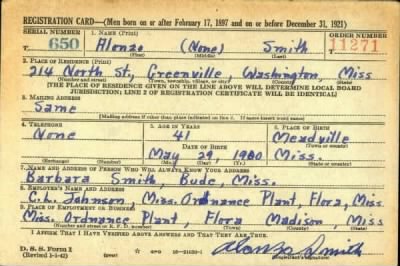 REGISTRATION CARD—(Men born on or after February 17, 1897 and on or before December 31, 1921)
SERIAL NUMBER 1. NAME (Print) ORDER NUMBER
T 650 Alonzo (None) Smith 11271
(First) (Middle) (Last)
2. PLACE OF RESIDENCE (Print)
214 North St, Greenville, Washington, Miss
(Number and street) (Town, township, village, or city) (County) (State)
[THE PLACE OF RESIDENCE GIVEN ON THE LINE ABOVE WILL DETERMINE LOCAL BOARD
JURISDICTION; LINE 2 OF REGISTRATION CERTIFICATE WILL BE IDENTICAL]
3. MAILING ADDRESS
Same
[Mailing address if other than place indicated on line 2. If same insert word same]
4. TELEPHONE 5. AGE IN YEARS 6. PLACE OF BIRTH
None 41 Meadville
DATE OF BIRTH (Town or county)
May 29, 1900 Miss.
(Exchange) (Number) (Mo.) (Day) (Yr.) (State or country)
7. NAME AND ADDRESS OF PERSON WHO WILL ALWAYS KNOW YOUR ADDRESS
Barbara Smith, Bude, Miss.
8. EMPLOYER'S NAME AND ADDRESS
C. L. Johnson, Miss. Ordnance Plant, Flora, Miss
9. PLACE OF EMPLOYMENT OR BUSINESS
Miss. Ordnance Plant, Flora Madison, Miss
(Number and street or R. F. D. number) (Town) (County) (State)
I AFFIRM THAT I HAVE VERIFIED ABOVE ANSWERS AND THAT THEY ARE TRUE.
D. S. S. Form 1
(Revised 1-1-42) Alonzo Smith